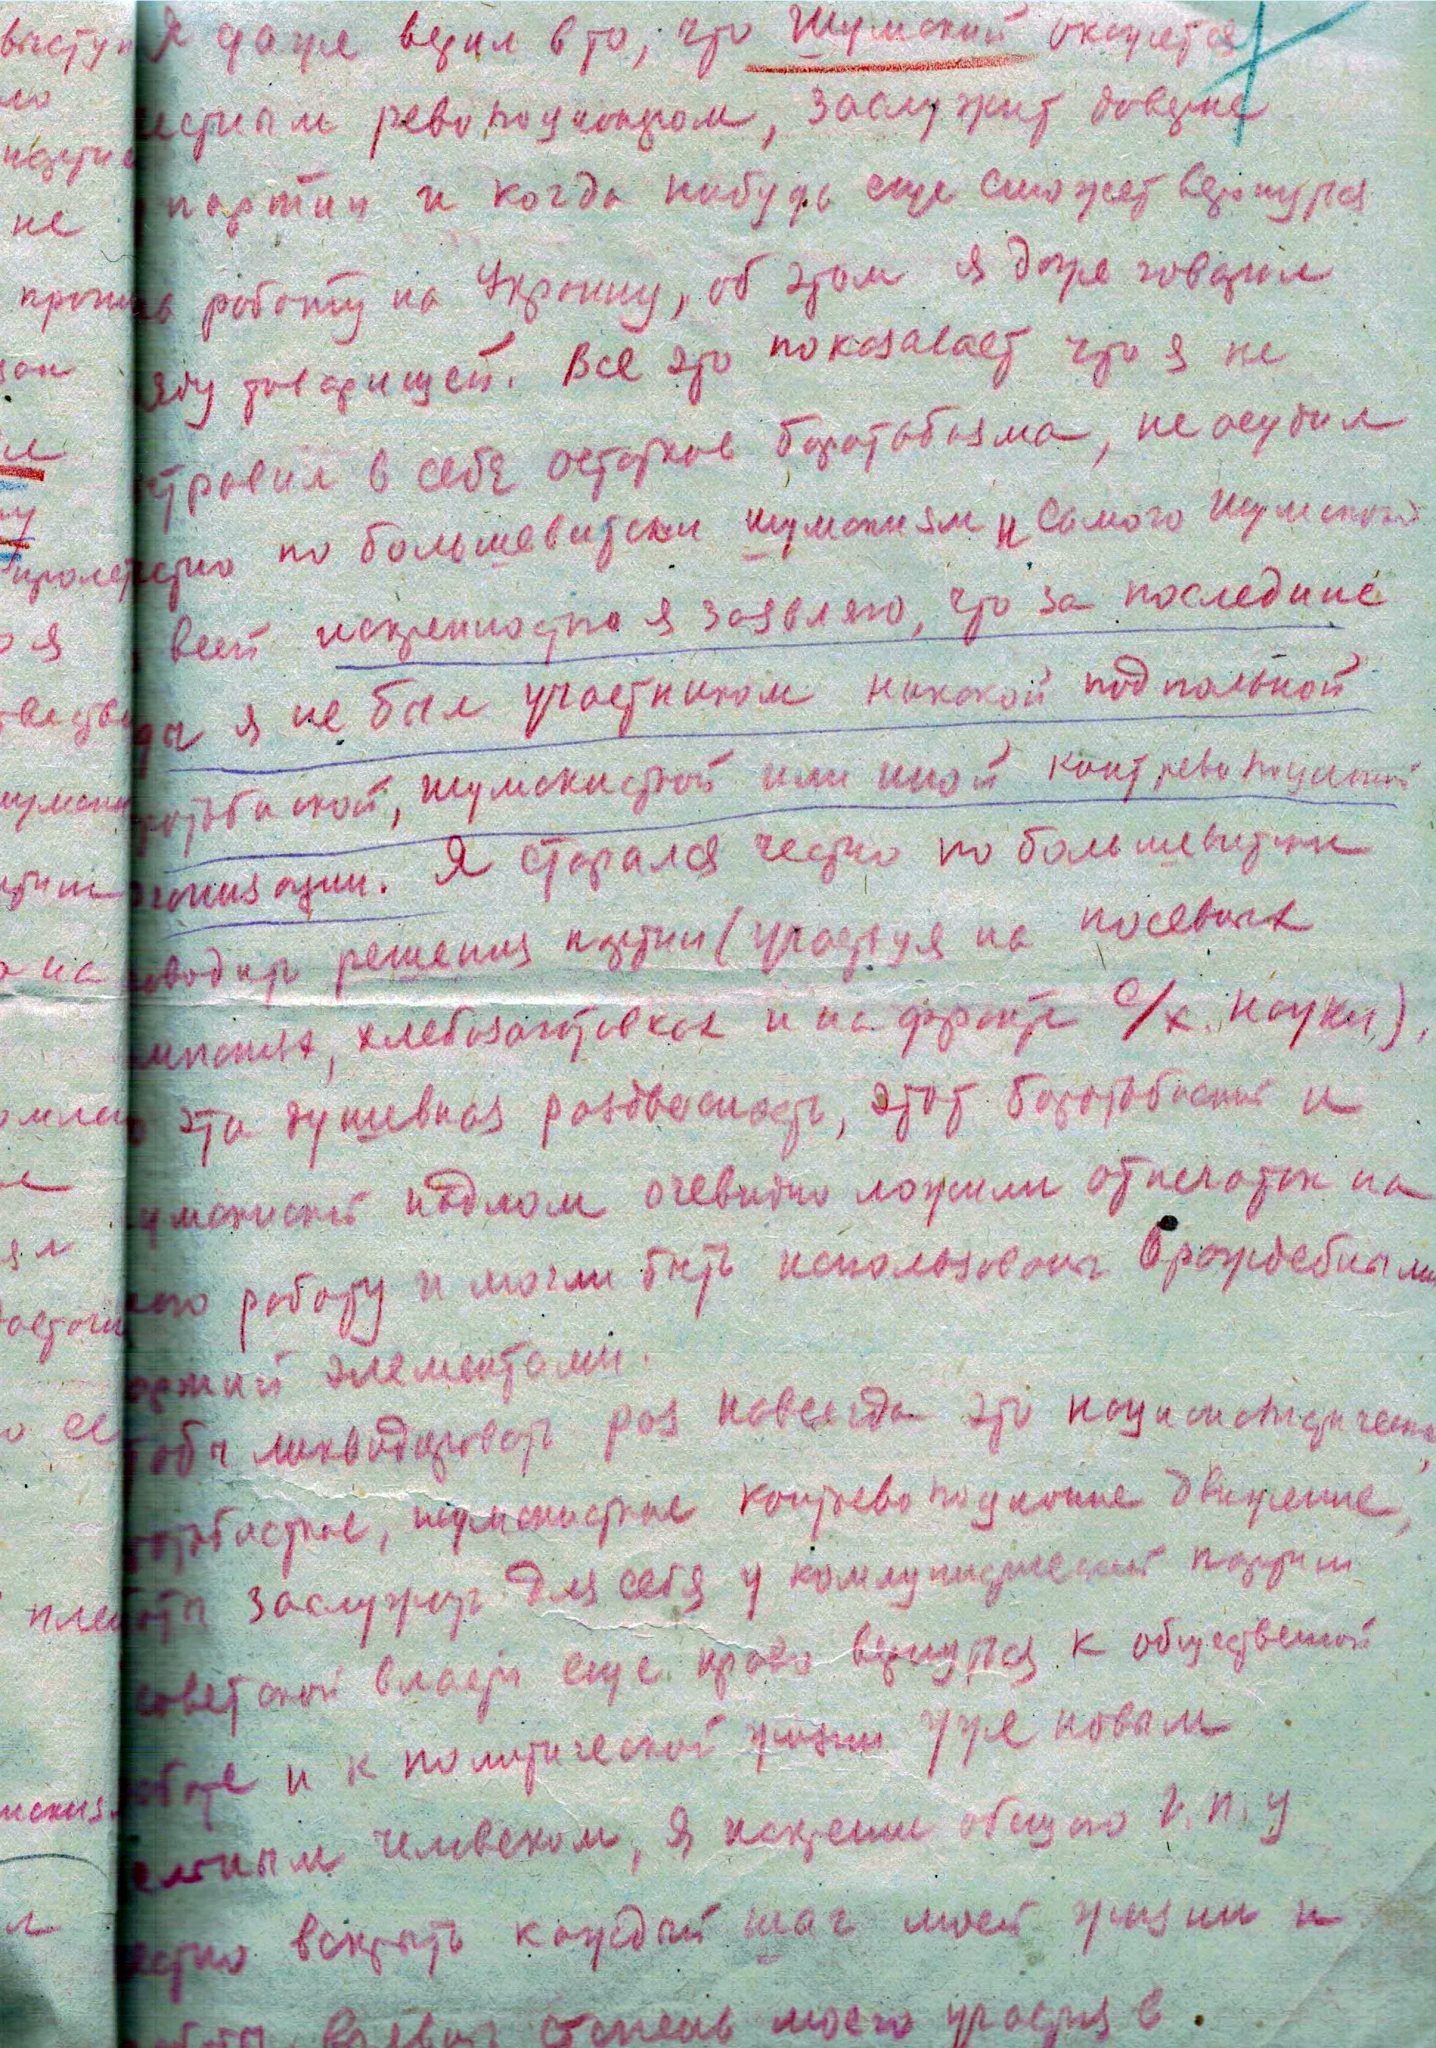 Я даже верил в то, что Шумский окажется
естным революционером, заслужит доверие
партии и когда нибудь еще сможет вернуться
работу на Украину, об этом я даже говорил
яду товарищей. Все это показавает что я не
травил в себе остатков боротьбизма, не осудил
естно по большевитски шумскизм и самого Шумского
всей искренностью я заявляю, что за последние
ды я не был участником никакой подпольной
ротьбиской, шумскистской или иной контрреволюционой
рганизации. Я старался честно по большевитски
оводить решения партии (участвуя на посевных
мпаниях, хлебозаготовках и на фронте с/х. науки),
о эта душевная раздвоеность, этот боротьбиский и
умскиский надлом очевидно ложили отпечаток на
мою работу и могли быть использованы враждебными
партии элементами.
тобы ликвидировать раз навсегда это националистическое,
ротьбистское, шумскистское контреволюционное движение,
тобы заслужить для себя у коммунистической партии
советской власти еще право вернуться к общественной
аботе и к политической жизни уже новым
естным человеком, я искренне обещаю Г.П.У
естно вскрыть каждый шаг моей жизни и
аботы, степень моего участия в